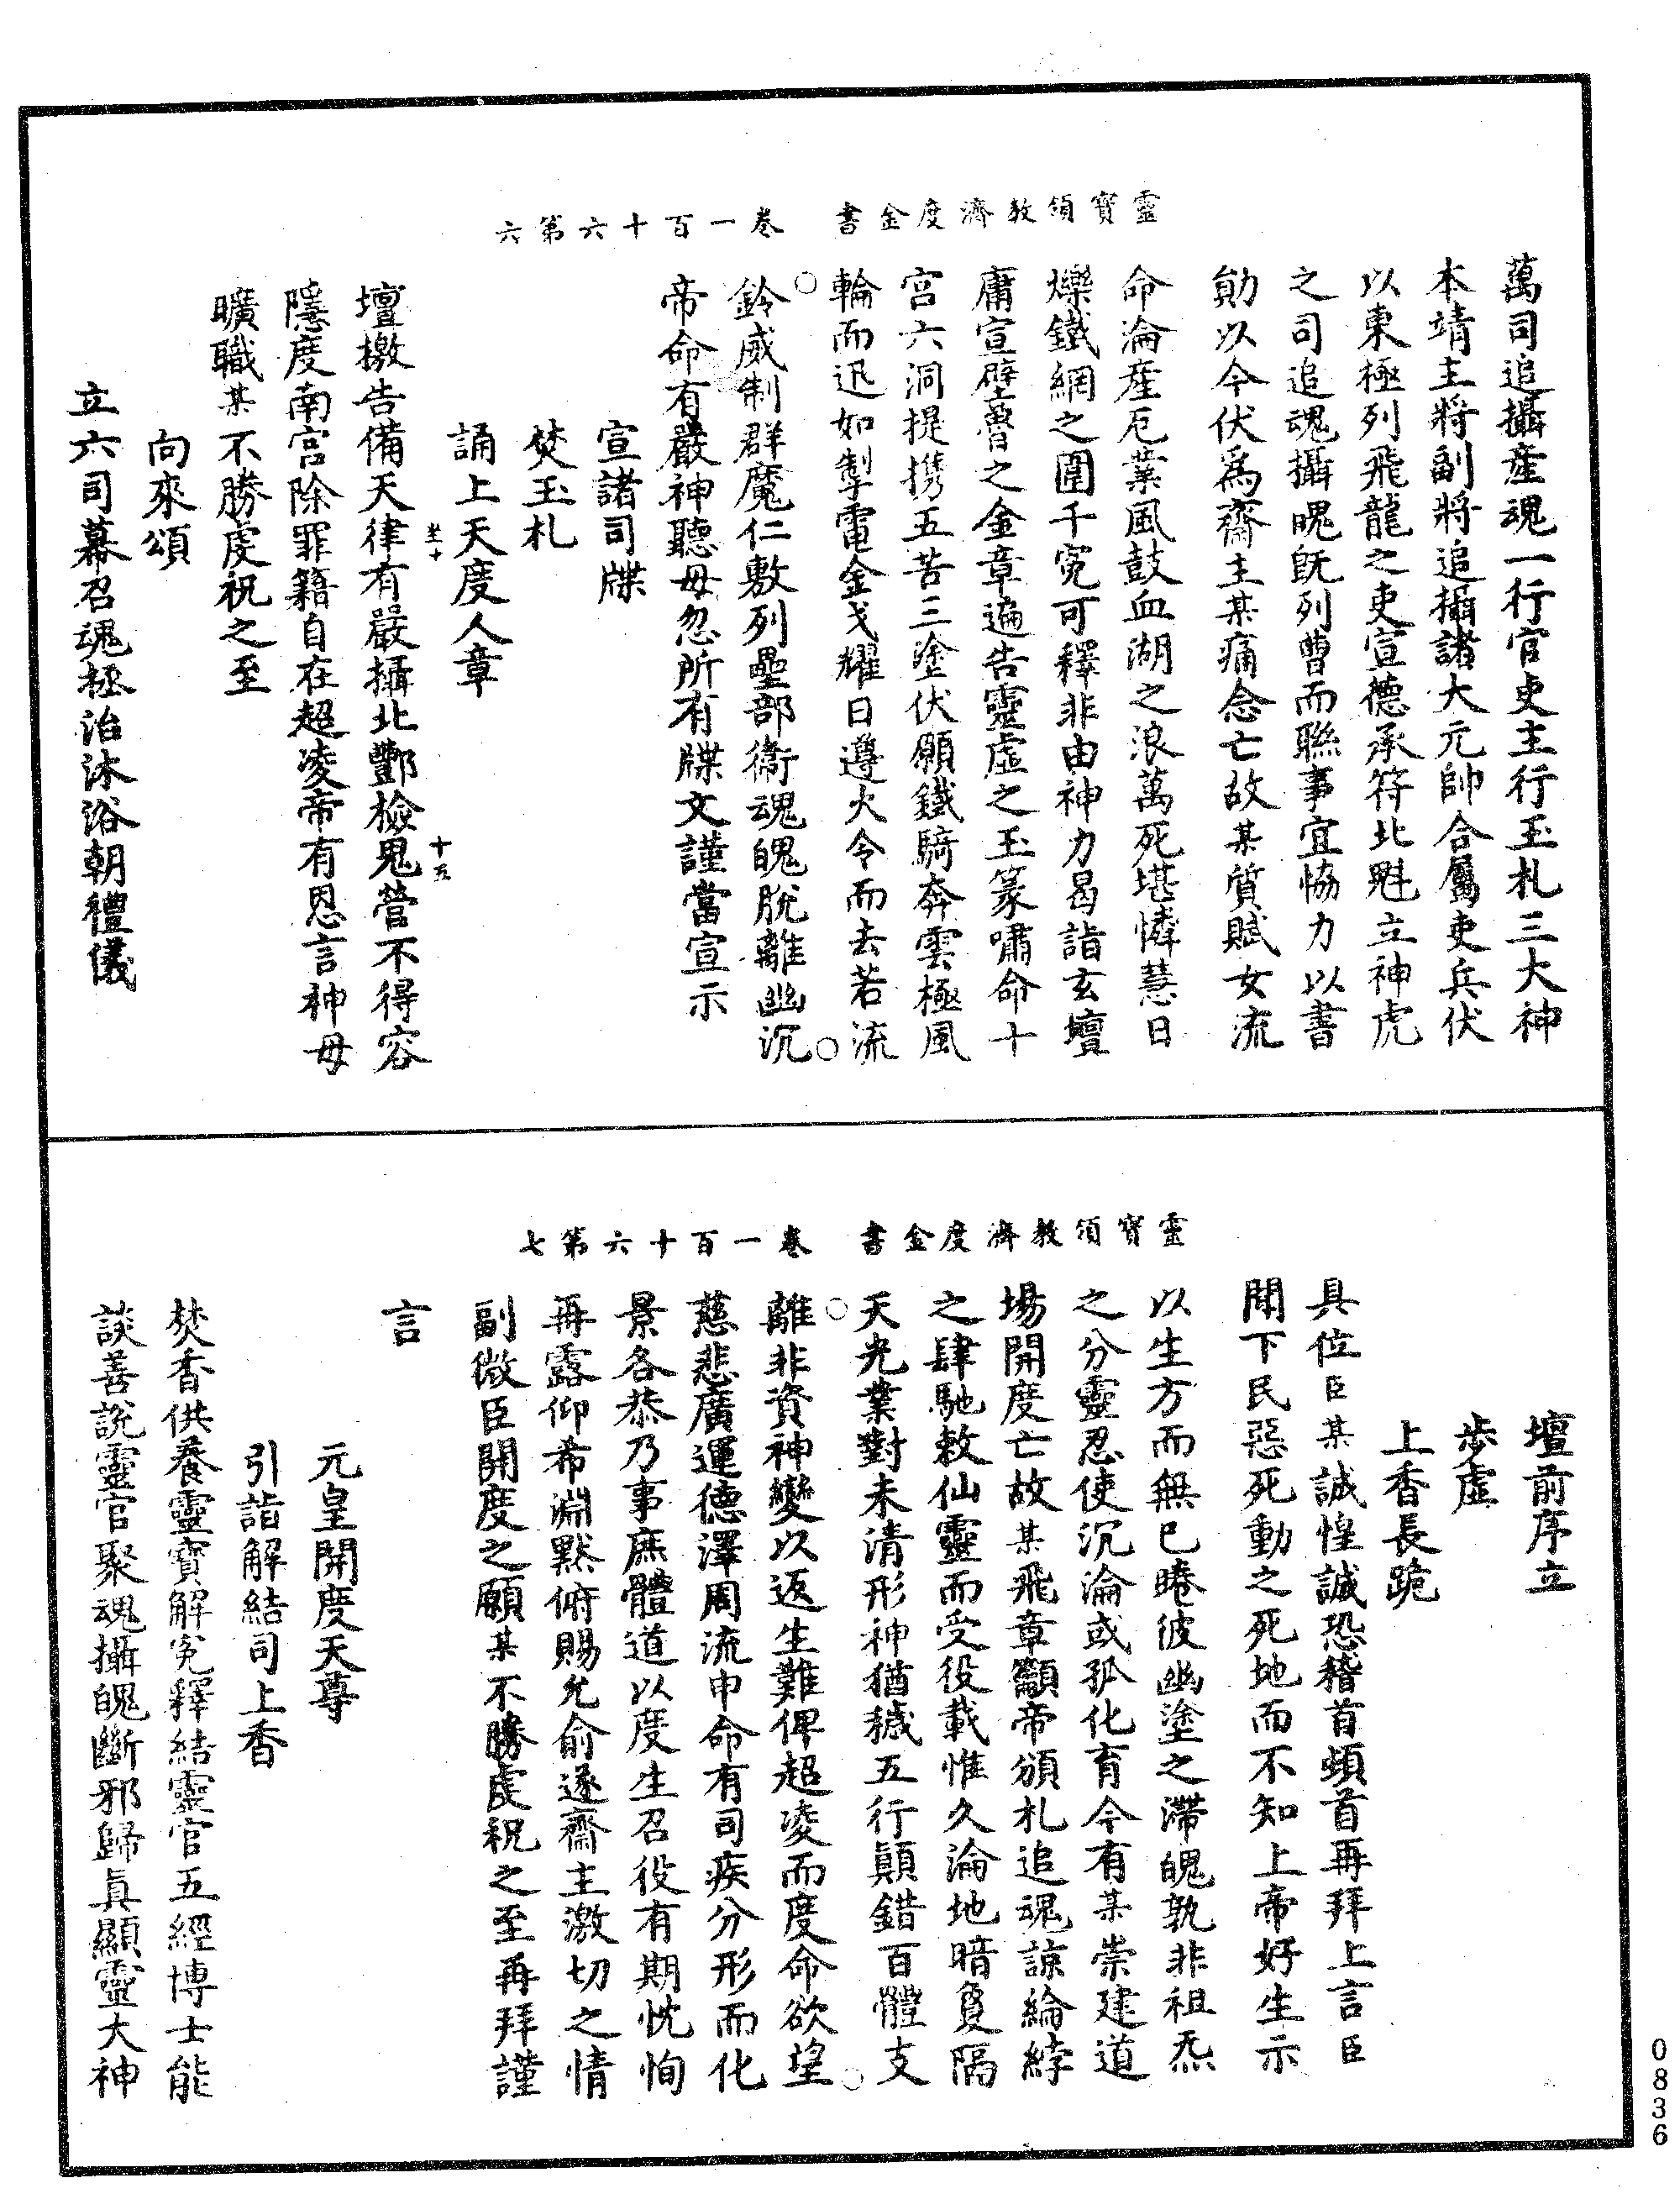 靈寶領教濟度金書　卷一百十六第六
萬司追攝產魂一行官吏主行玉札三大神
本靖主將副將追攝諸大元帥合屬吏兵伏
以東極列飛龍之吏宣德承符北魁立神虎
之司追魂攝魄旣列曹而聯事宜恊力以書
勛以今伏爲齋主某痛念亡故某質賦女流
命淪產厄業風鼓血湖之浪萬死堪憐慧日
爍鐵網之圍千寃可釋非由神力曷詣玄壇
庸宣壁魯之金章遍告靈虛之玉篆嘯命十
宮六洞提携五苦三塗伏願鐵騎奔雲極風
輪而迅如掣電金戈耀日遵火令而去若流
鈴威制群魔仁敷列壘部衛魂魄脫離幽沉
帝命有嚴神聽毋忽所有牒文謹當宣示
宣諸司牒
焚玉札
誦上天度人章
坐十　十五
壇檄告備天律有嚴攝北酆檢鬼營不得容
隱度南宮除罪籍自在超凌帝有恩言神毋
曠職某不勝虔祝之至
向來頌
立六司幕召魂拯治沐浴朝禮儀
靈寶領教濟度金書　卷一百十六第七
壇前序立
步虛
上香長跪
具位臣某誠惶誠恐稽首頓首再拜上言臣
聞下民惡死動之死地而不知上帝好生示
以生方而無已睠彼幽塗之滯魄孰非祖炁
之分靈忍使沉淪或孤化育今有某崇建道
場開度亡故某飛章籲帝頒札追魂諒綸綍
之肆馳敕仙靈而受役載惟久淪地暗夐隔
天光業對未清形神猶穢五行顛錯百體支
離非資神變以返生難俾超凌而度命欲望
慈悲廣運德澤周流申命有司疾分形而化
景各恭乃事庶體道以度生召役有期忱恂
再露仰希淵默俯賜允俞遂齋主激切之情
副微臣開度之願某不勝虔祝之至再拜謹
言
元皇開度天尊
引詣解結司上香
焚香供養靈寶解寃釋結靈官五經博士能
談善說靈官聚魂攝魄斷邪歸眞顯靈大神
0836